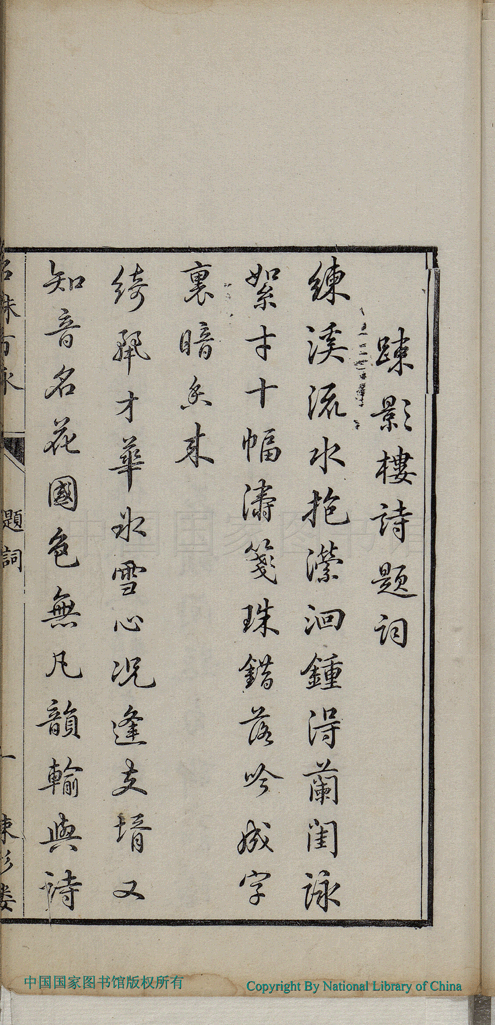 踈影樓詩題詞
練溪流水抱瀠洄鍾得蘭閨詠
絮才十幅濤箋珠錯落吟成字
裏暗香來
綺麗才華氷雪心况逢夫壻又
知音名花國色無凡韻輸與詩
題詞
一
中国国家图书馆
中国国家图书馆版权所有
Copyright By National Library of China